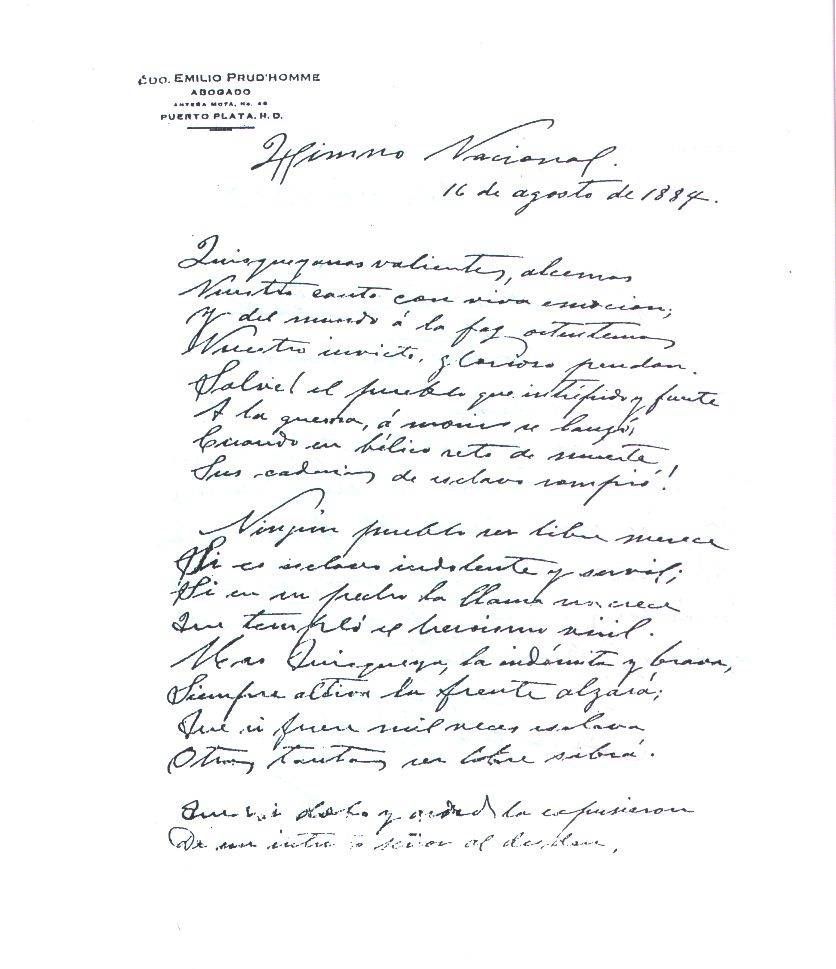 LCDO. EMILIO PRUD'HOMME
ABOGADO
ANTERA MOTA, No. 46
PUERTO PLATA, H. D.
Himno Nacional.
16 de agosto de 1884.
Quisqueyanos valientes, alcemos
Nuestro canto con viva emocion;
Y del mundo á la faz ostentemos
Nuestro invicto, glorioso pendon.
Salve! el pueblo que intrépido y fuerte
A la guerra, á morir se lanzó;
Cuando en bélico reto de muerte
Sus cadenas de esclavo rompió!
Ningún pueblo ser libre merece
Si es esclavo indolente y servil;
Si en su pecho la llama no crece
Que templó el heroismo viril.
Mas Quisqueya, la indómita y brava,
Siempre altiva la frente alzará;
Que si fuere mil veces esclava
Otras tantas ser libre sabrá.
Que si dolo y ardid la expusieron
De un intruso señor al desden,